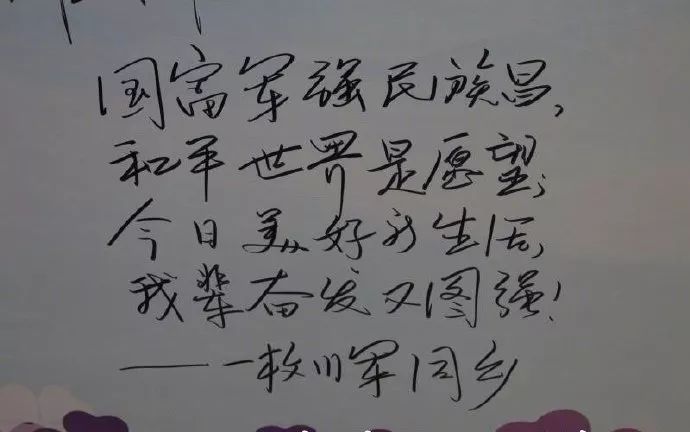 国富军强民族昌，
和平世界是愿望；
今日美好新生活，
我辈奋发又图强！
——一枚川军同乡